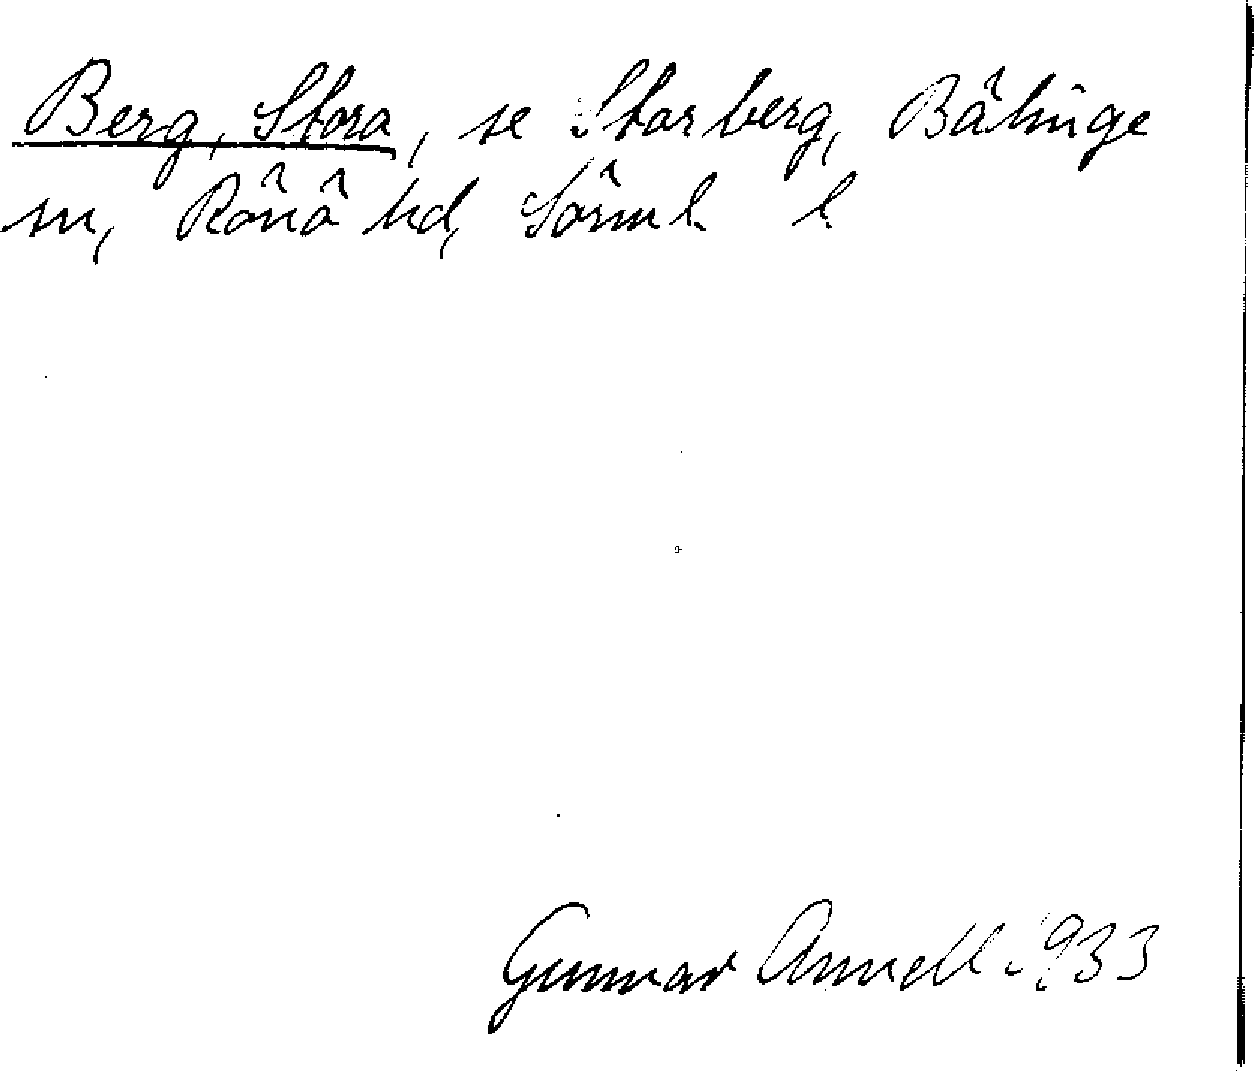 Berg, Stora, se Storberg, Bälinge
sn, Rönö hd, Sörml l
Gunnar Annell 1933